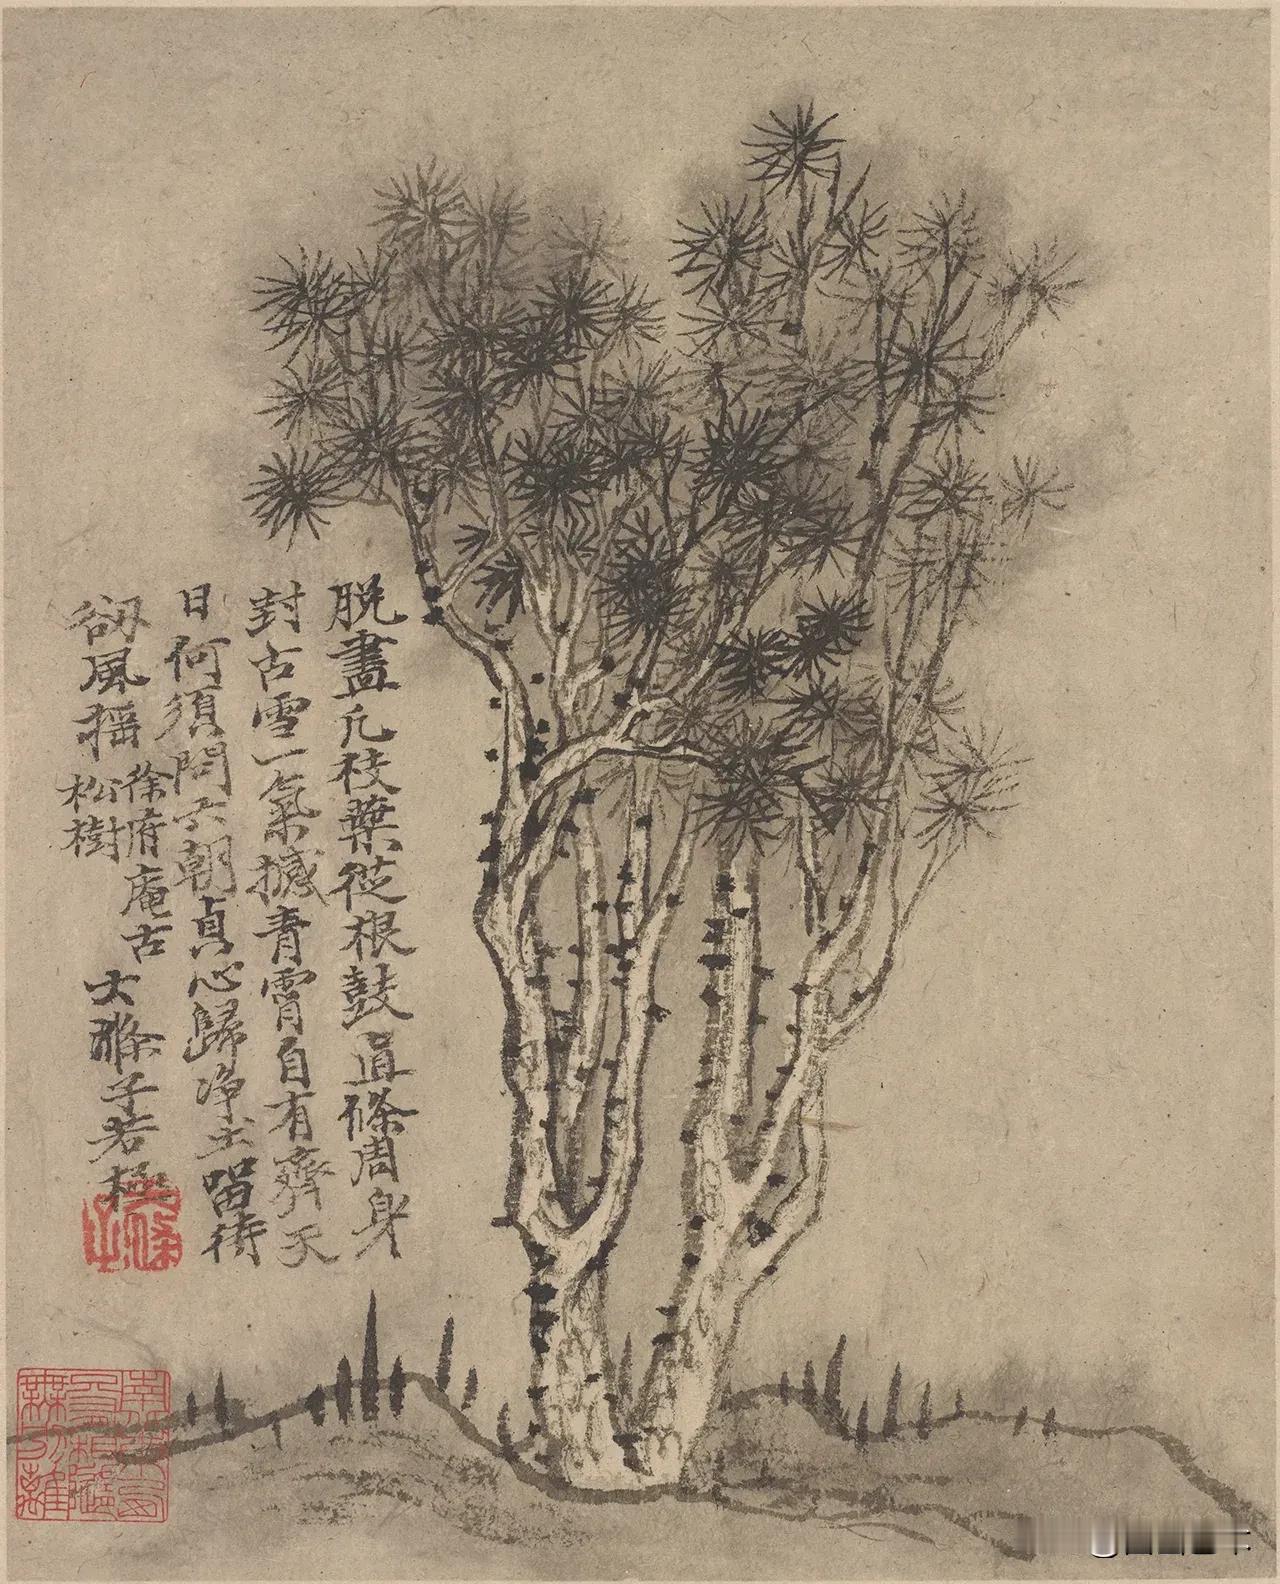 脱盡凡枝葉從根鼓直條周身
封古雪一氣撼青霄自有齊天
日何須問六朝貞心歸淨土留待
風搖
徐府庵古
松樹
大滌子若極